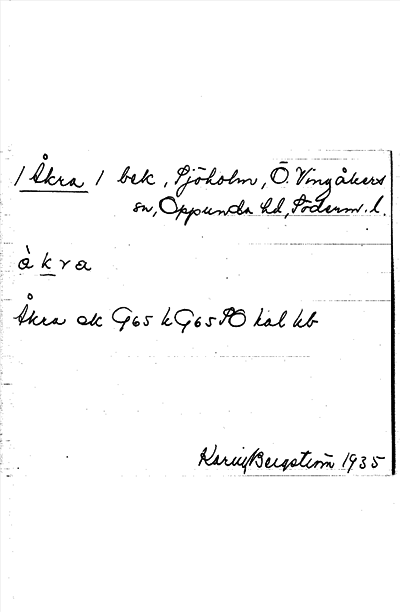 / Åkra / bek, Sjöholm, Ö. Vingåkers
sn, Oppunda hd, Söderm. l.
åkra
Åkra ek G65 k G65 SO kal kb
Karin Bergström 1935